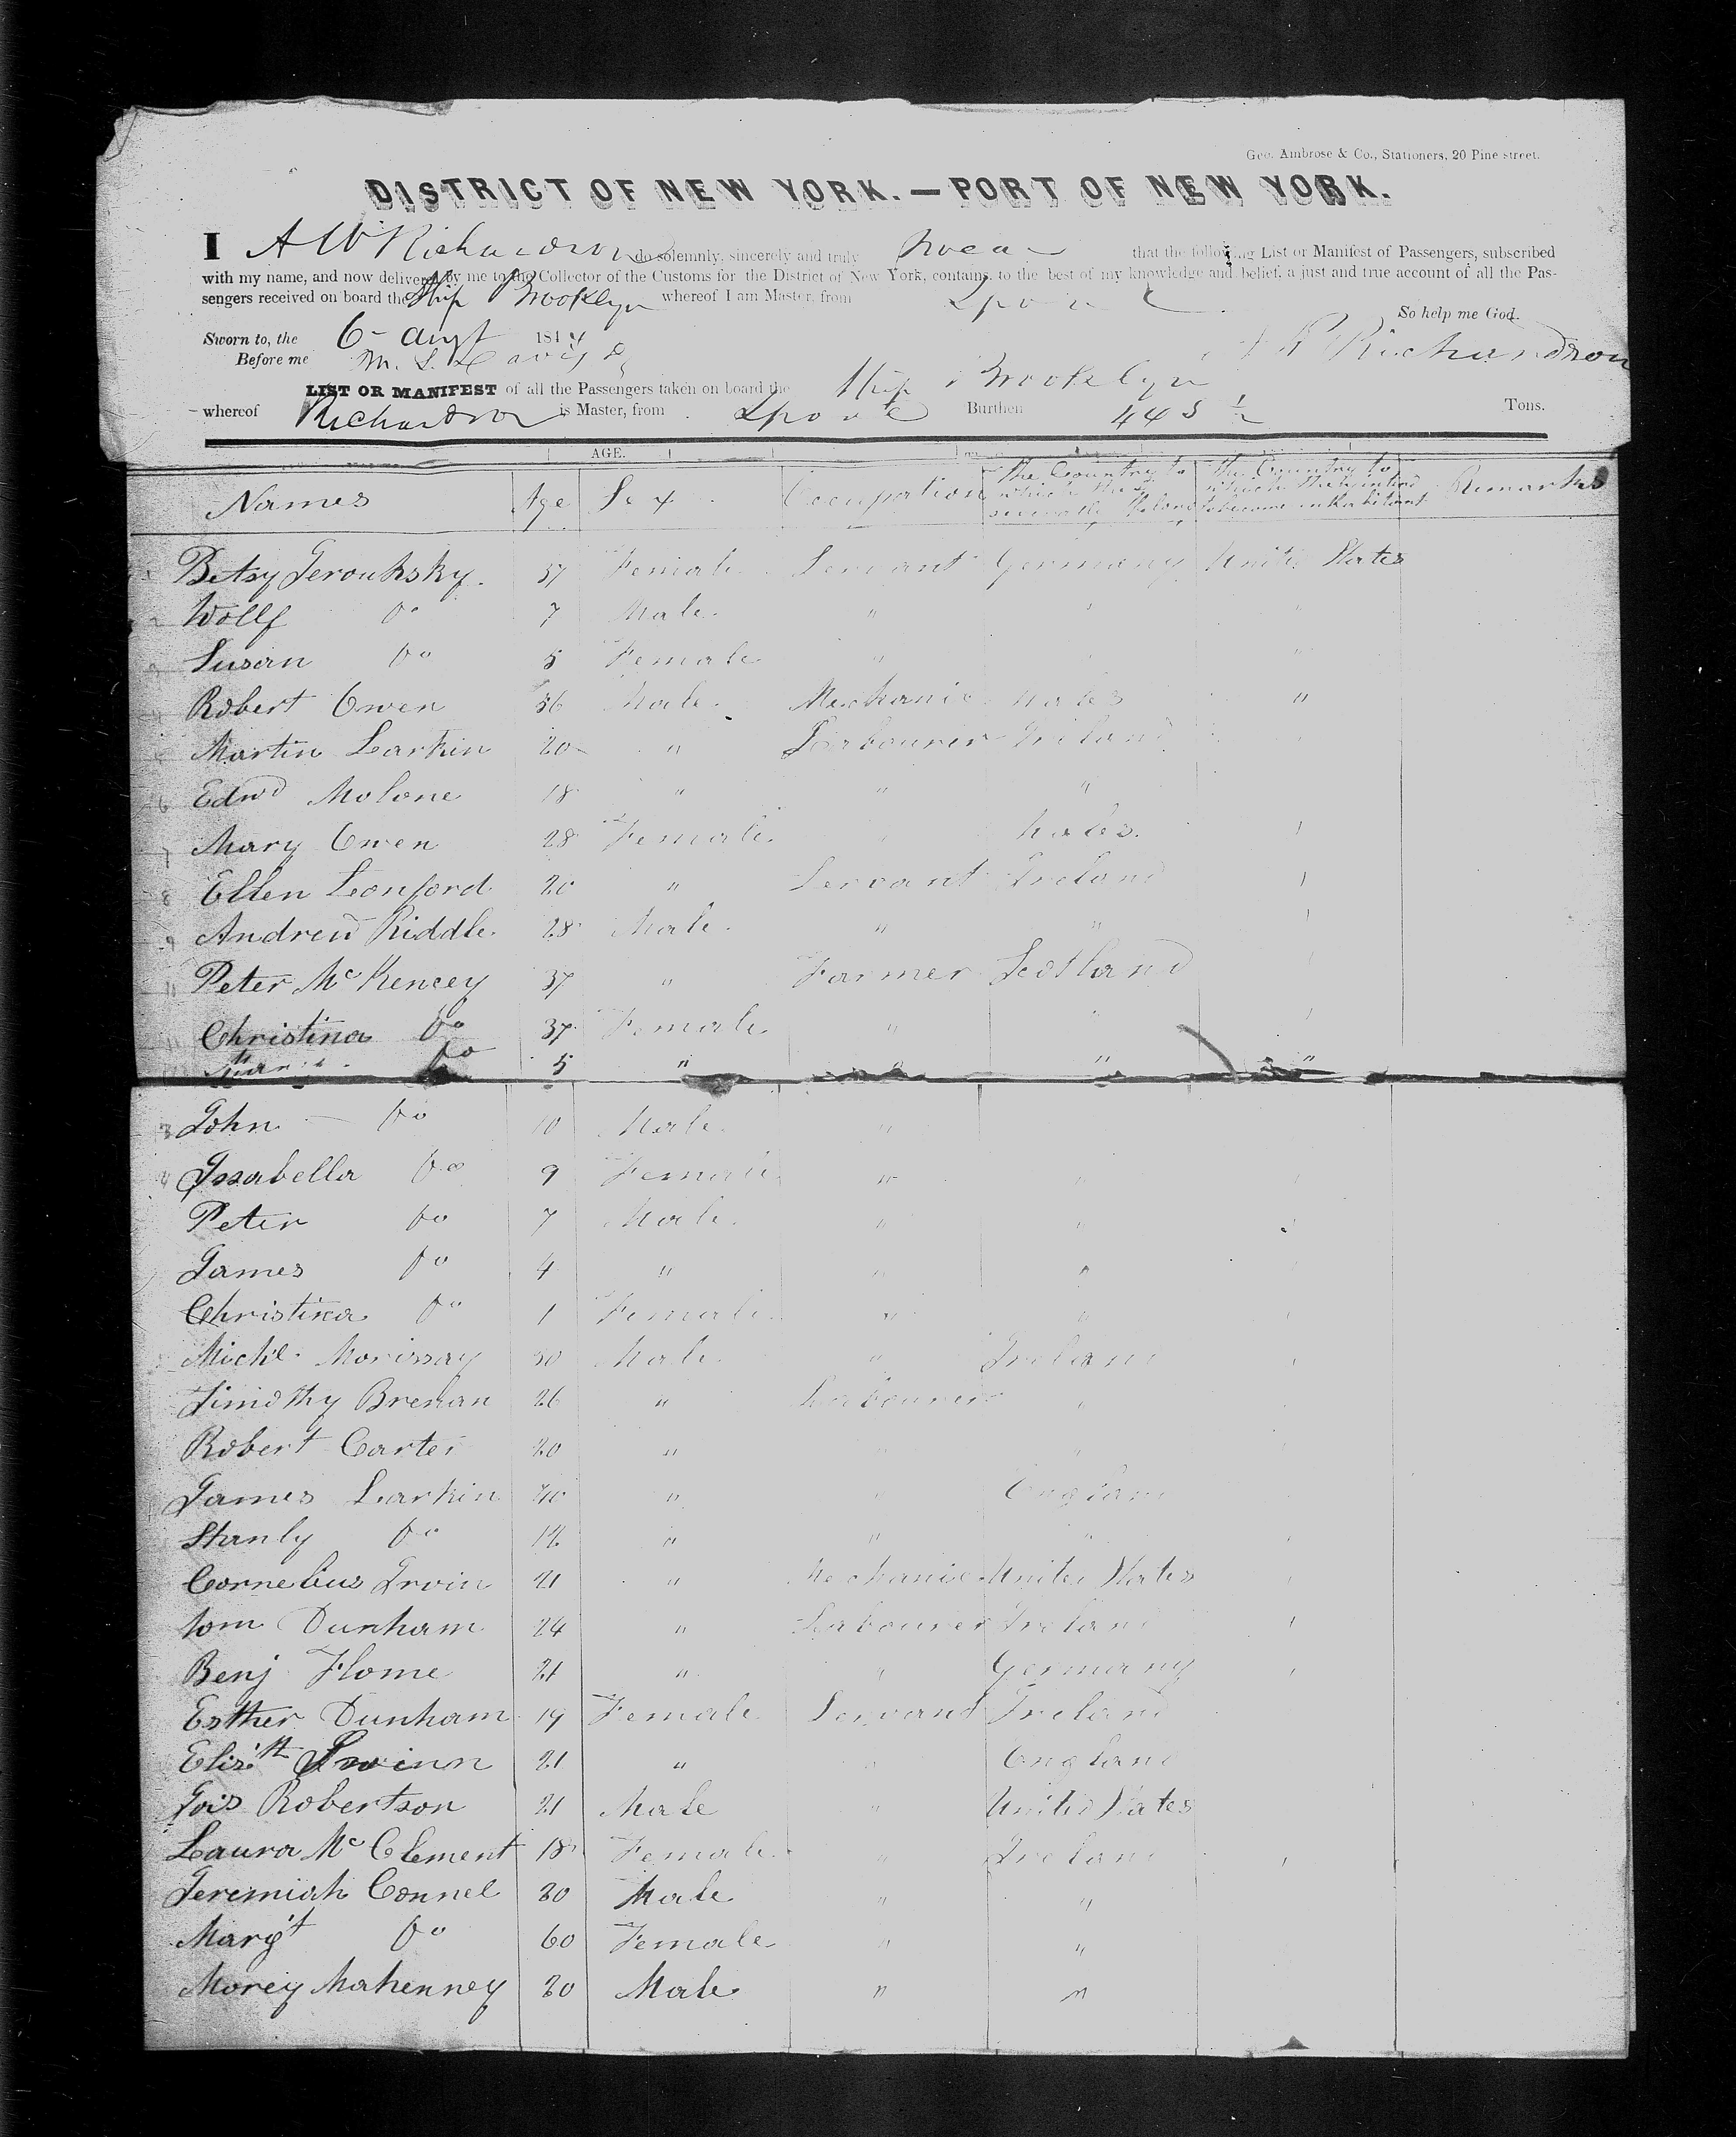 Geo. Ambrose & Co., Stationers, 20 Pine street.
DISTRICT OF NEW YORK.—PORT OF NEW YORK.
I A W Richardson do solemnly, sincerely and truly swear that the following List or Manifest of Passengers, subscribed
with my name, and now delivered by me to the Collector of the Customs for the District of New York, contains, to the best of my knowledge and belief, a just and true account of all the Pas-
sengers received on board the Ship Brooklyn whereof I am Master, from Lpool
So help me God.
Sworn to, the 6 Augt 184
Before me Richardson
LIST OR MANIFEST of all the Passengers taken on board the Ship Brooklyn
whereof Richardson is Master, from Lpool Burthen 445 1/2 Tons.
AGE.
Names Age Sex Occupation The Country to which they severally belong The Country to which they intend to become inhabitants Remarks
Betsy 37 Female Servant Germany United States
2 Wolff Do 7 Male " " "
3 Susan Do 5 Female " " "
4 Robert Owen 36 Male Mechanic Wales "
5 Martin Larkin 20 " Labourer Ireland "
6 Edwd Molone 18 " " "
7 Mary Owen 28 Female " Wales "
8 Ellen Leonford 20 " Servant Ireland "
9 Andrew Riddle 28 Male " " "
10 Peter McKencey 37 " Farmer Scotland "
11 Christina Do 37 Female " " "
Do 5 " " " "
John Do 10 Male "
Issabella Do 9 Female " " "
Peter Do 7 Male " " "
James Do 4 " " " "
Christina Do 1 Female " " "
Michl Morissay 50 Male " Ireland "
Timothy Brenan 26 " Labourer "
Robert Carter 20 " " "
James Larkin 40 " " England
Stanly Do 14 " " " "
Cornelius Irvin 21 " Mechanic United States "
Wm Dunham 24 " Labourer Ireland "
Benj Flome 21 " " Germany "
Esther Dunham 19 Female Servant Ireland
Elizth 21 " " England
Robertson 21 Male " United States
Laura McClement 18 Female " Ireland "
Jeremiah Connel 30 Male " "
Margt Do 60 Female " "
Morey Mahenney 20 Male " "